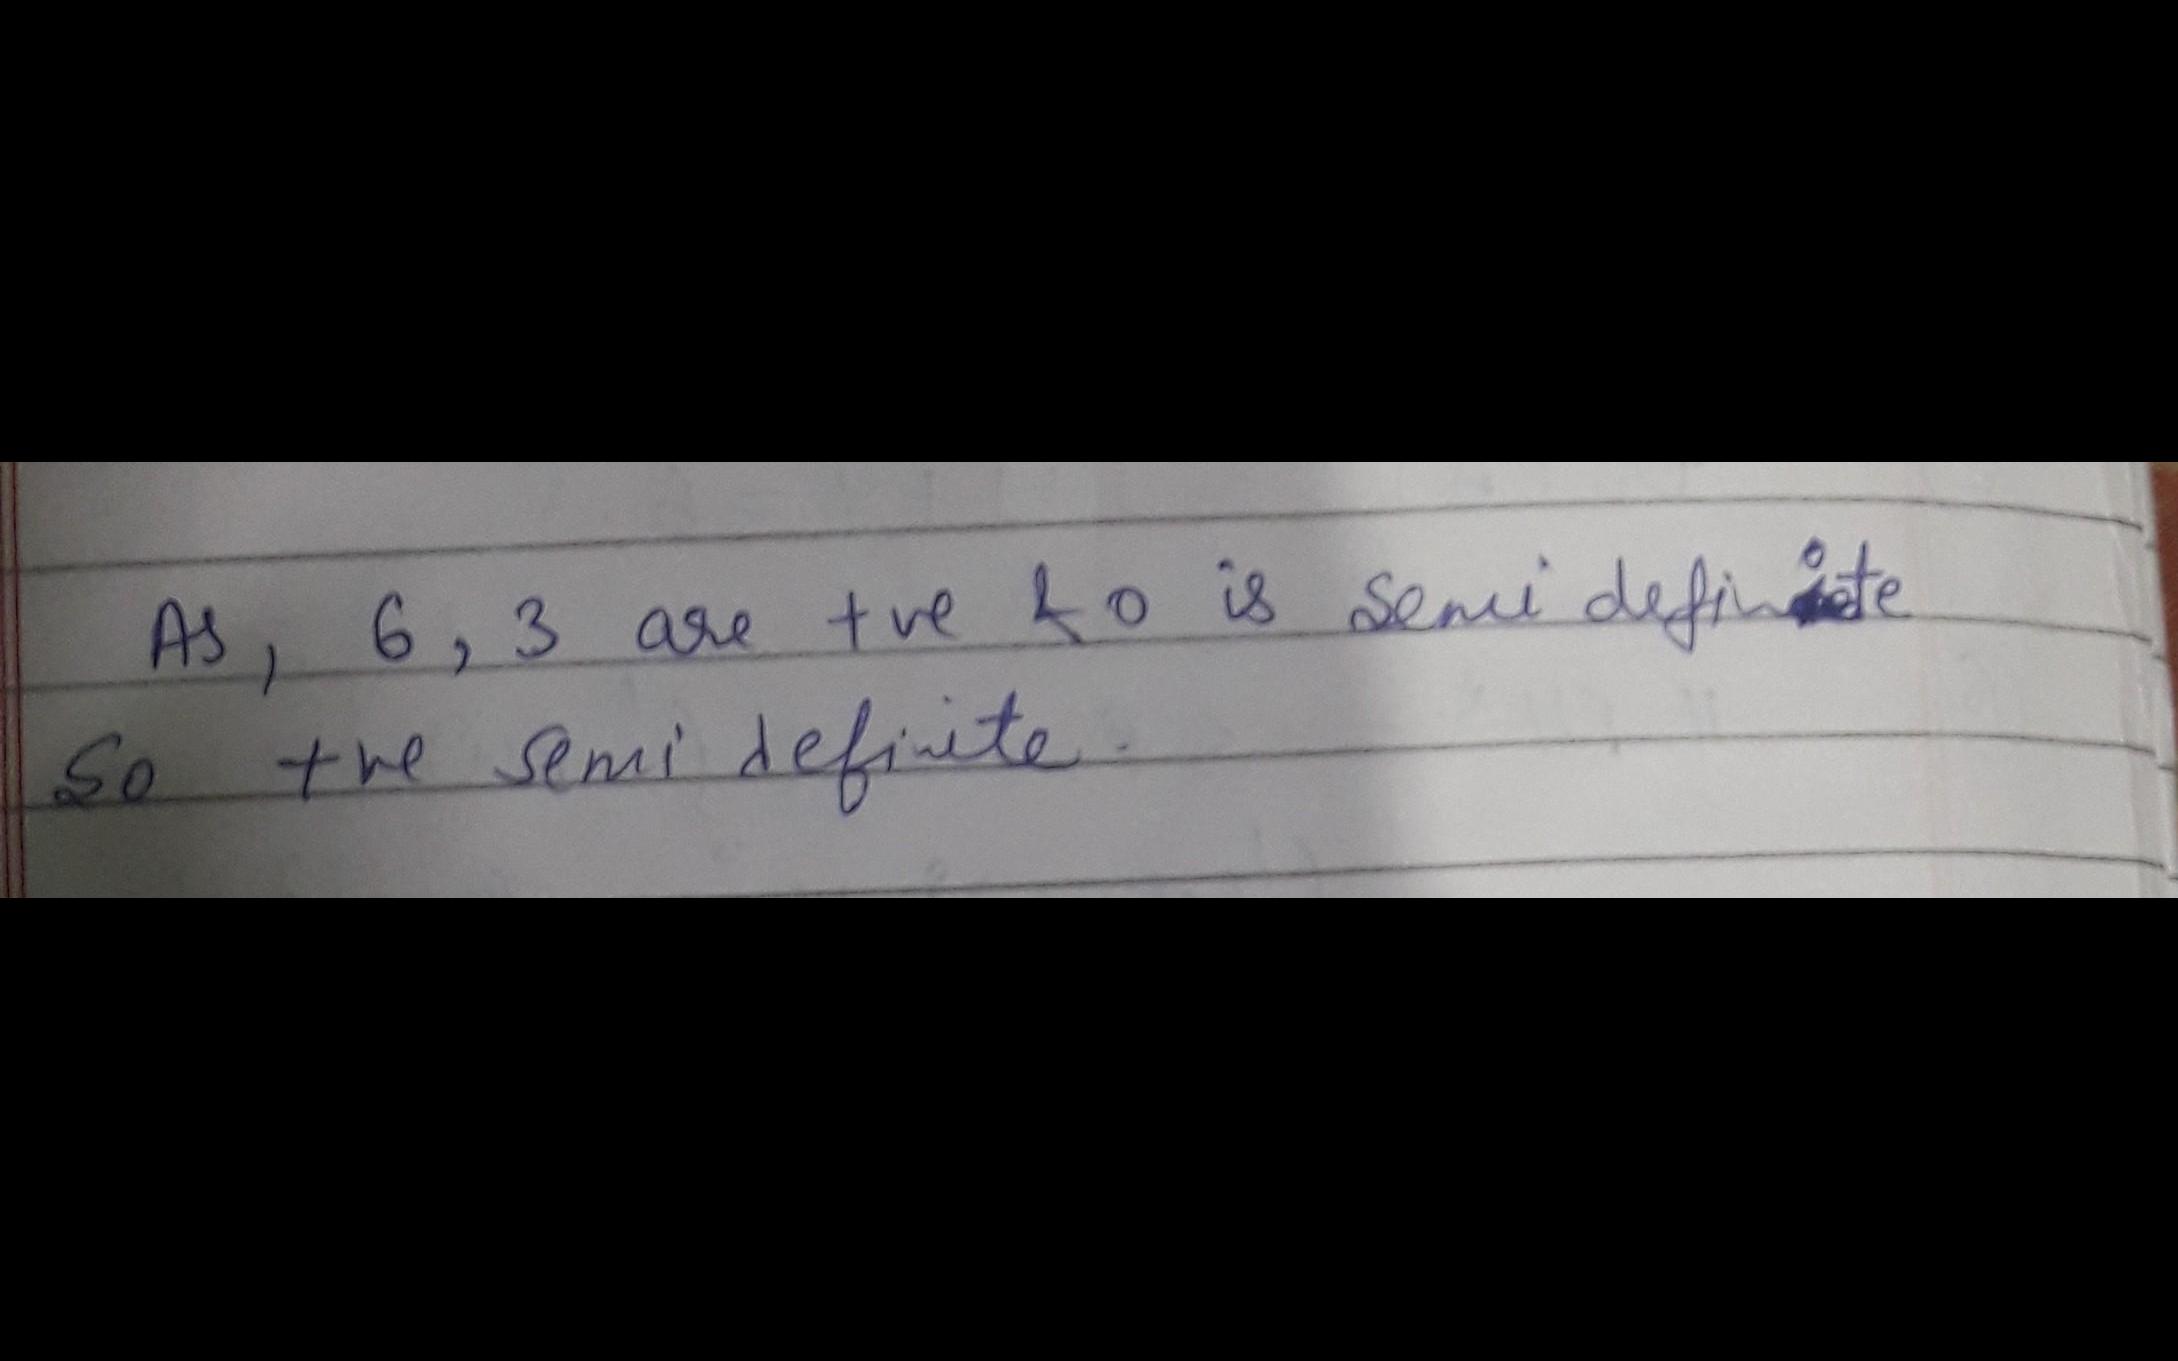 As, 6, 3 are +ve & 0 is semi definite
So +ve semi definite.